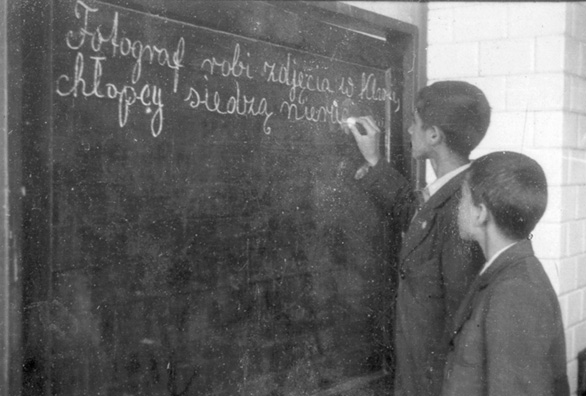 Fotograf robi zdjęcia w klasie,
chłopcy siedzą